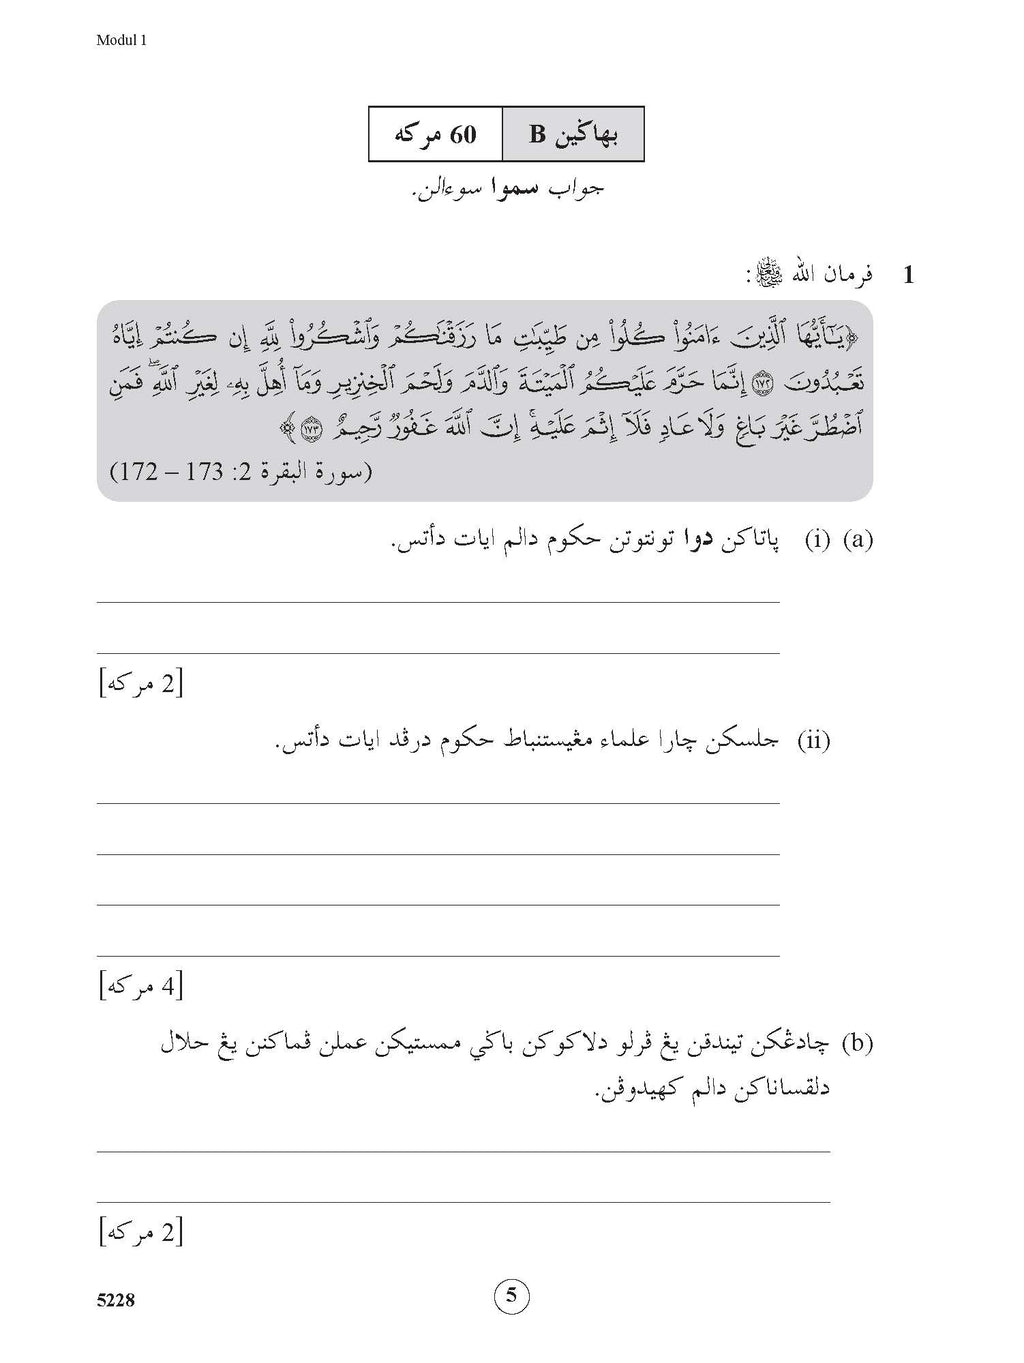 Modul 1
بهاݢين B 60 مركه
جواب سموا سوءالن.
1 فرمان الله ﷻ:
﴿يَـٰٓأَيُّهَا ٱلَّذِينَ ءَامَنُوا۟ كُلُوا۟ مِن طَيِّبَـٰتِ مَا رَزَقْنَـٰكُمْ وَٱشْكُرُوا۟ لِلَّهِ إِن كُنتُمْ إِيَّاهُ
تَعْبُدُونَ ١٧٢ إِنَّمَا حَرَّمَ عَلَيْكُمُ ٱلْمَيْتَةَ وَٱلدَّمَ وَلَحْمَ ٱلْخِنزِيرِ وَمَآ أُهِلَّ بِهِۦ لِغَيْرِ ٱللَّهِۖ فَمَنِ
ٱضْطُرَّ غَيْرَ بَاغٍ وَلَا عَادٍ فَلَآ إِثْمَ عَلَيْهِۚ إِنَّ ٱللَّهَ غَفُورٌ رَّحِيمٌ ١٧٣﴾
(سورة البقرة 2: 173 – 172)
(a) (i) ڽاتاكن دوا تونتوتن حكوم دالم ايات دأتس.
[2 مركه]
(ii) جلسكن چارا علماء مڠيستنباط حكوم درڤد ايات دأتس.
[4 مركه]
(b) چادڠكن تيندقن يڠ ڤرلو دلاكوكن باݢي ممستيكن عملن ڤماكنن يڠ حلال
دلقساناكن دالم كهيدوڤن.
[2 مركه]
5228
5